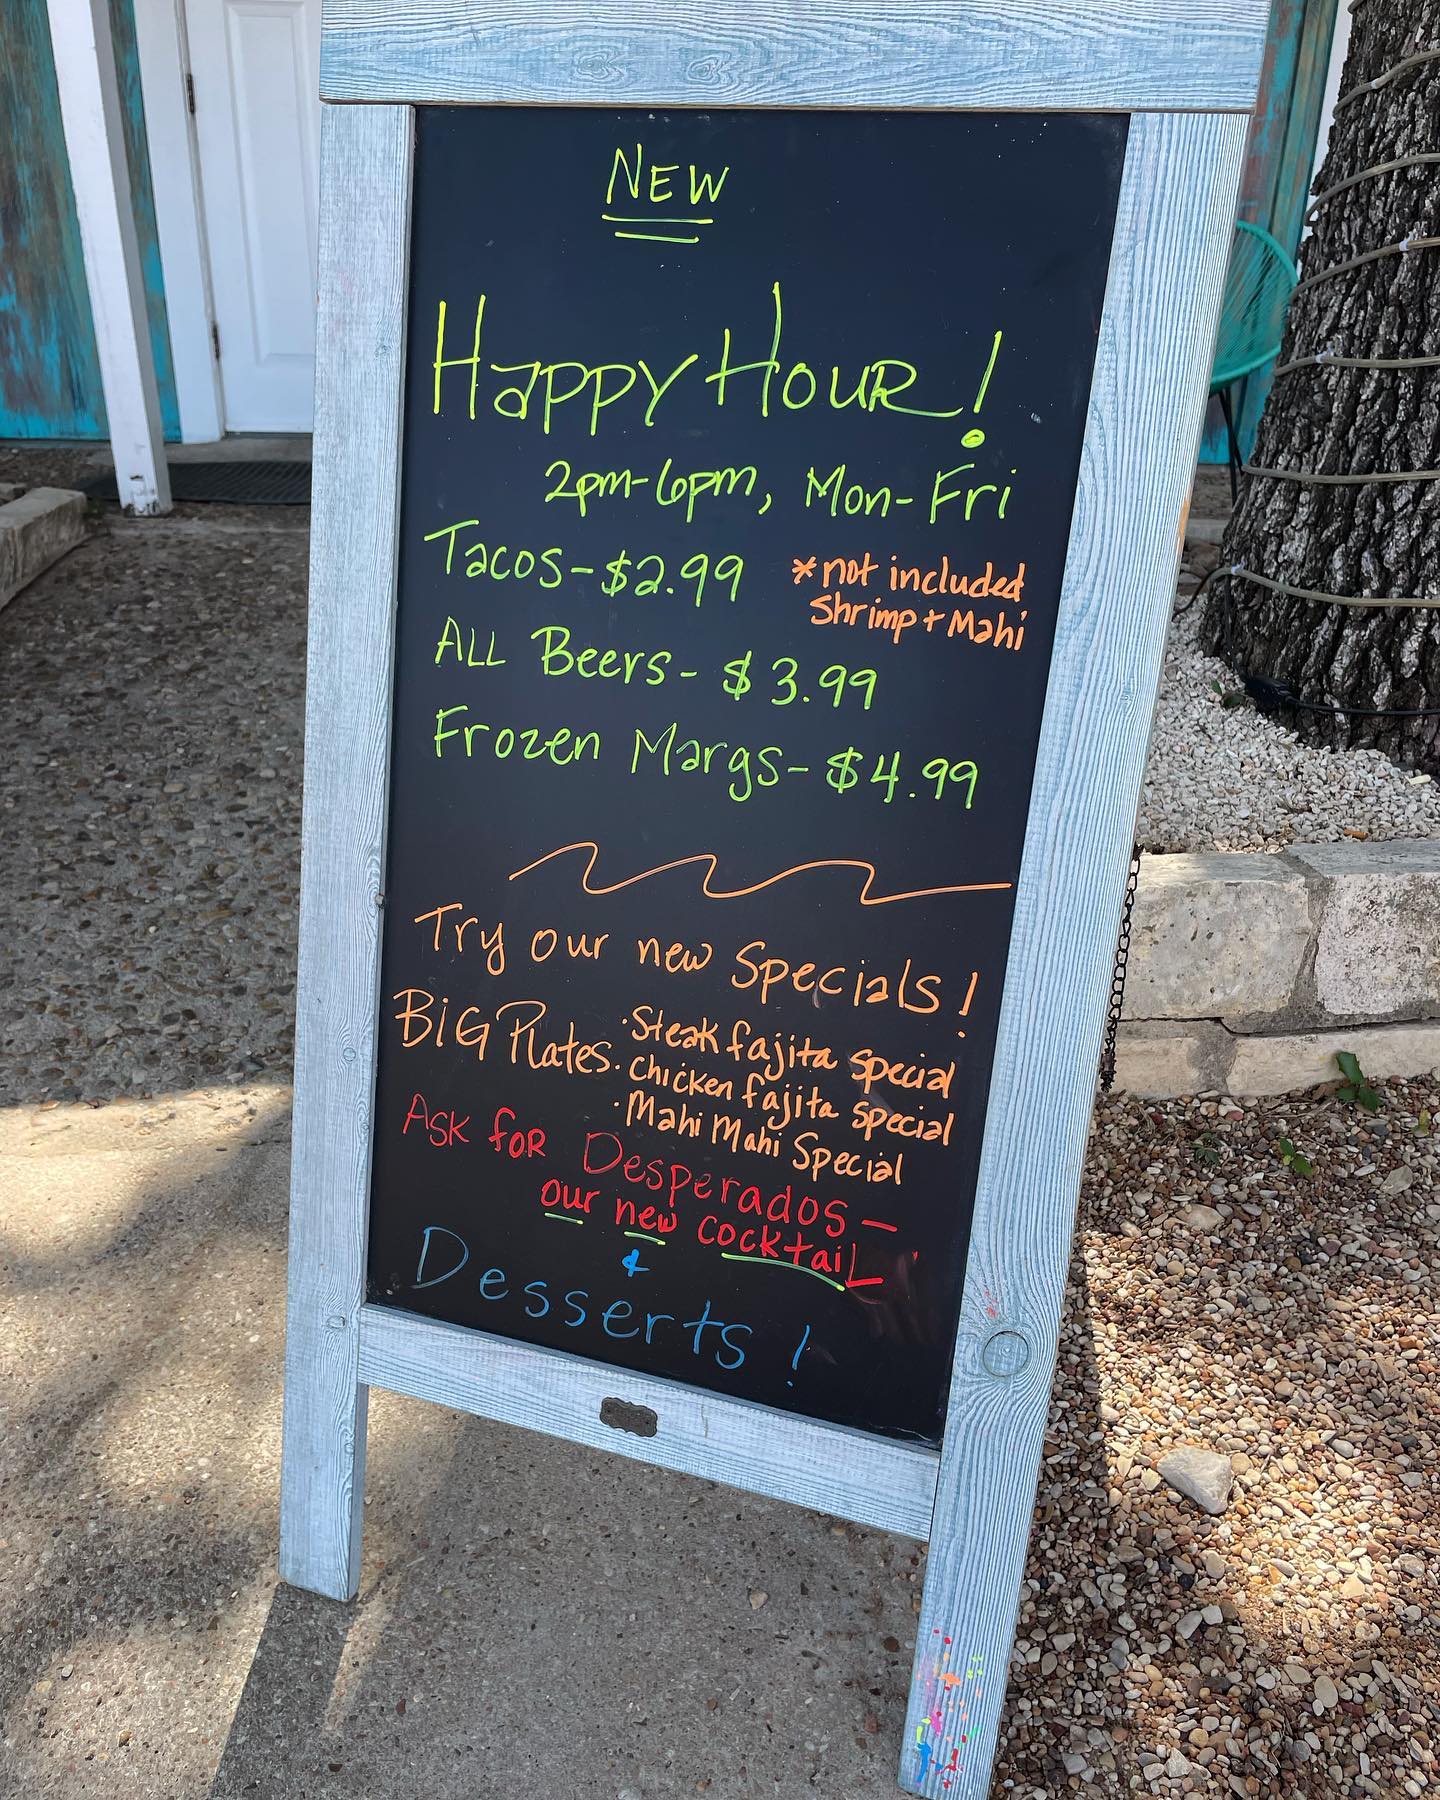 NEW
Happy Hour!
2pm-6pm, Mon-Fri
Tacos-$2.99 *not included
Shrimp + Mahi
ALL Beers- $3.99
Frozen Margs- $4.99
Try our new Specials!
BIG Plates
·Steak fajita special
·Chicken fajita special
·Mahi Mahi Special
ASK for Desperados-
our new cocktail
&
Desserts!